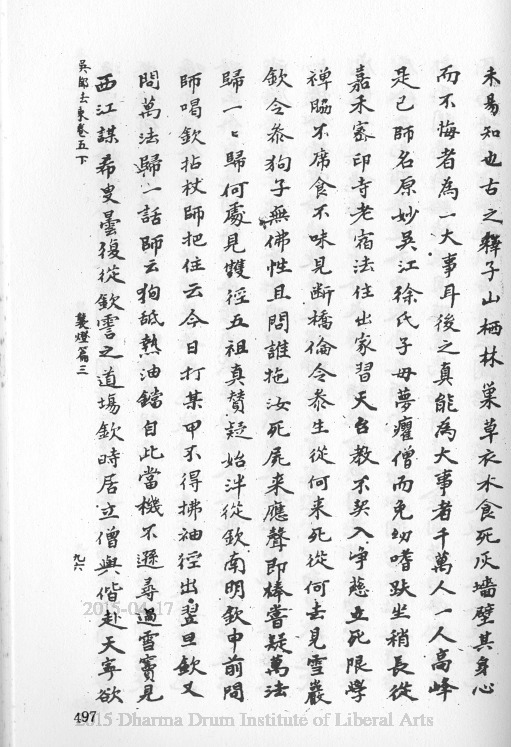 未易知也古之釋子山栖林巢草衣木食死灰墻壁其身心
而不悔者為一大事耳後之真能為大事者千萬人一人高峰
是已師名原妙吳江徐氏子母夢癯僧而免幼嗜趺坐稍長從
嘉禾密印寺老宿法住出家習天台教不契入淨慈立死限學
禪脇不席食不味見斷橋倫令叅生從何来死從何去見雪巖
欽令叅狗子無佛性且問誰拖汝死屍来應聲即棒嘗疑萬法
歸一〻歸何處見雙徑五祖真賛疑始泮從欽南明欽申前問
師喝欽拈杖師把住云今日打某甲不得拂袖徑出翌旦欽又
問萬法歸一話師云狗舐熱油鐺自此當機不遜尋過雪竇見
西江謀希叟曇復從欽霅之道塲欽時居立僧與偕赴天寧欲
吳都法乗卷五下
襲燈篇三
九六
497
2015-04-17
2015 Dharma Drum Institute of Liberal Arts